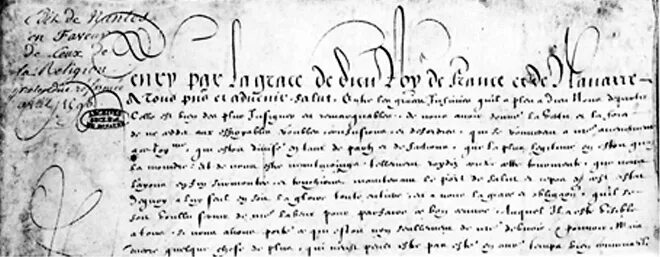 Edit de Nantes
en Faveur
de Ceux de
la Religion
pretendue reformee
avril 1598
Henry par la grace de dieu Roy de France et de Navarre
A tous pñs et advenir salut. Entre les graces Infinies quil a pleu a Dieu Nous departir
Celle est bien des plus Insignes et remarquables de nous avoir donné la vertu et la force
de ne ceder aux effroyables troubles confusions et desordres qui se trouverent a nre advenement
a ce Royme qui estoit divisé en tant de partz et de factions que la plus legitime en estoit quasi
la moindre et de nous estre neantmoings tellement roydiz contre ceste tourmente que nous
layons en fin surmontee et touchions maintenant le port de salut et repos de cest estat
Dequoy a luy seul en soit la gloire toute entiere et a nous la grace et obligaon quil se
soit voullu servir de nre labeur pour parfaire ce bon oeuvre Auquel Il a esté visible
a tous si nous avons porté ce qui estoit non seullement de nre debvoir et pouvoir Mais
encore quelque chose de plus qui neust peult estre pas esté en autre temps bien convenable